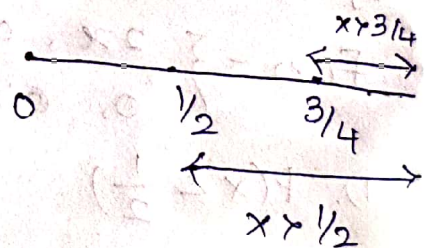 x>3/4
0 1/2 3/4
x>1/2